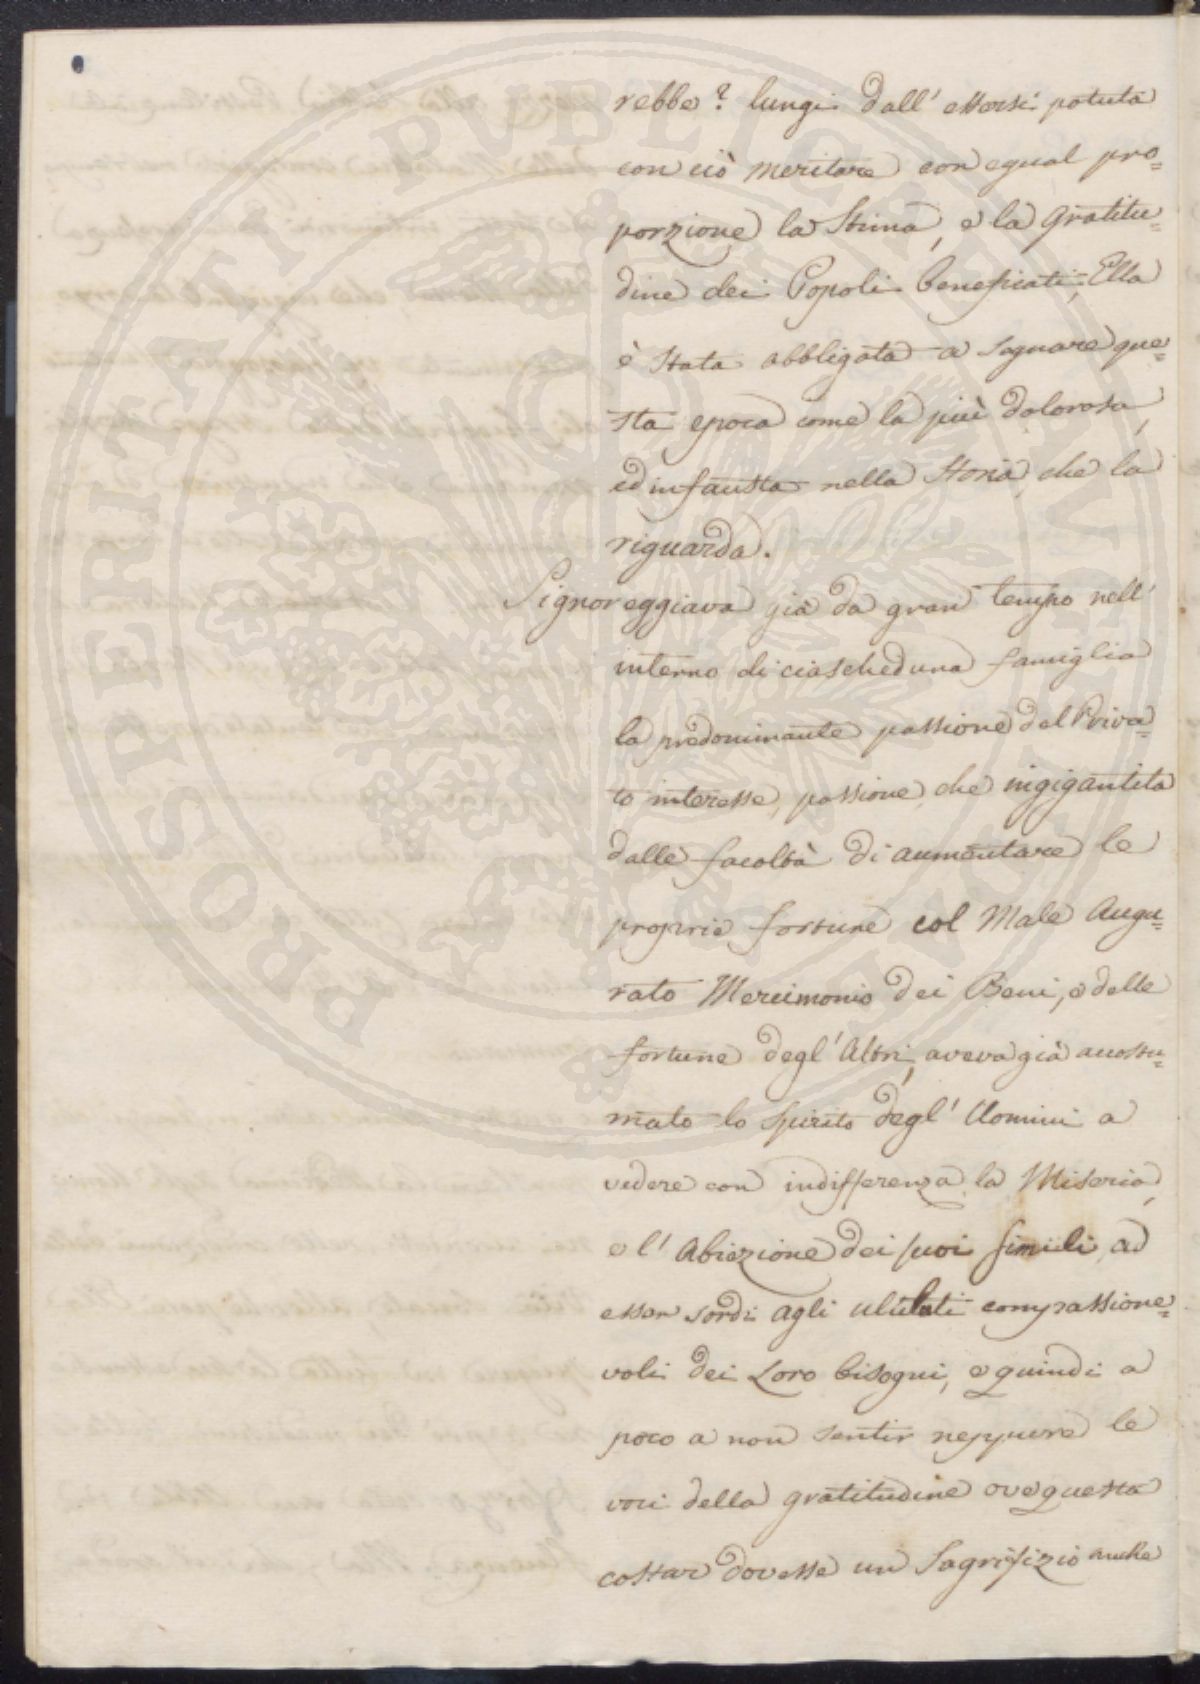 rebbe? lungi dall' essersi potuta
con ciò meritare con egual pro=
porzione la Stima, e la Gratitu=
dine dei Popoli beneficati, Ella
è stata obbligata a segnare que=
sta epoca come la più dolorosa,
ed infausta nella Storia, che la
riguarda.
Signoreggiava già da gran tempo nell'
interno di ciascheduna famiglia
la predominante passione del Priva=
to interesse, passione, che ingigantita
dalle facoltà di aumentare le
proprie fortune col Male Augu=
rato Mercimonio dei Beni, e delle
fortune degl' Altri, aveva già accostu=
mato lo Spirito degl' Uomini a
vedere con indifferenza la Miseria,
e l' Abiezione dei suoi simili, ad
esser sordi agli ululati compassione=
voli dei Loro bisogni, e quindi a
poco a non sentir neppure le
voci della gratitudine ove questa
costar dovesse un Sagrifizio anche
PROSPERITATI PUBLICAE AUGENDAE